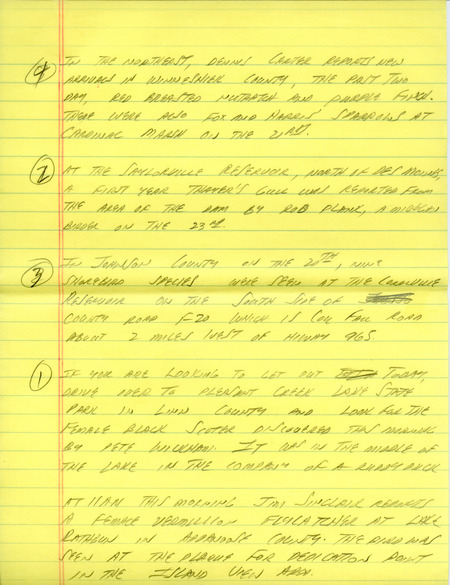 ④ IN THE NORTHEAST, DENNIS CARTER REPORTS NEW
ARRIVALS IN WINNESHIEK COUNTY, THE PAST TWO
DAY, RED BREASTED NUTHATCH AND PURPLE FINCH.
THERE WERE ALSO HARRIS' SPARROWS AT
CARDINAL MARSH ON THE 21ST.
② AT THE SAYLORVILLE RESERVOIR, NORTH OF DES MOINES
A FIRST YEAR THAYER'S GULL WAS REPORTED FROM
THE AREA OF THE DAM BY ROB PLANK, A MICHIGAN
BIRDER ON THE 23RD.
③ IN JOHNSON COUNTY ON THE 20TH, NINE
SHOREBIRD SPECIES WERE SEEN AT THE CORALVILLE
RESERVOIR ON THE SOUTH SIDE OF
COUNTY ROAD F-20 WHICH IS COU FALL ROAD
ABOUT 2 MILES WEST OF HIWAY 965
① IF YOU ARE LOOKING TO GET OUT TODAY,
DRIVE OVER TO PLEASANT CREEK LAKE STATE
PARK IN LINN COUNTY AND LOOK FOR THE
FEMALE BLACK SCOTER DISCOVERED THIS MORNING
BY PETE WICKHAM. IT WAS IN THE MIDDLE OF
THE LAKE IN THE COMPANY OF A RUDDY DUCK
AT 11AM THIS MORNING JIM SINCLAIR REPORTS
A FEMALE VERMILLION FLYCATCHER AT LAKE
RATHBUN IN APPANOOSE COUNTY. THE BIRD WAS
SEEN AT THE PLAQUE FOR DEDICATION POINT
IN THE ISLAND VIEW AREA.